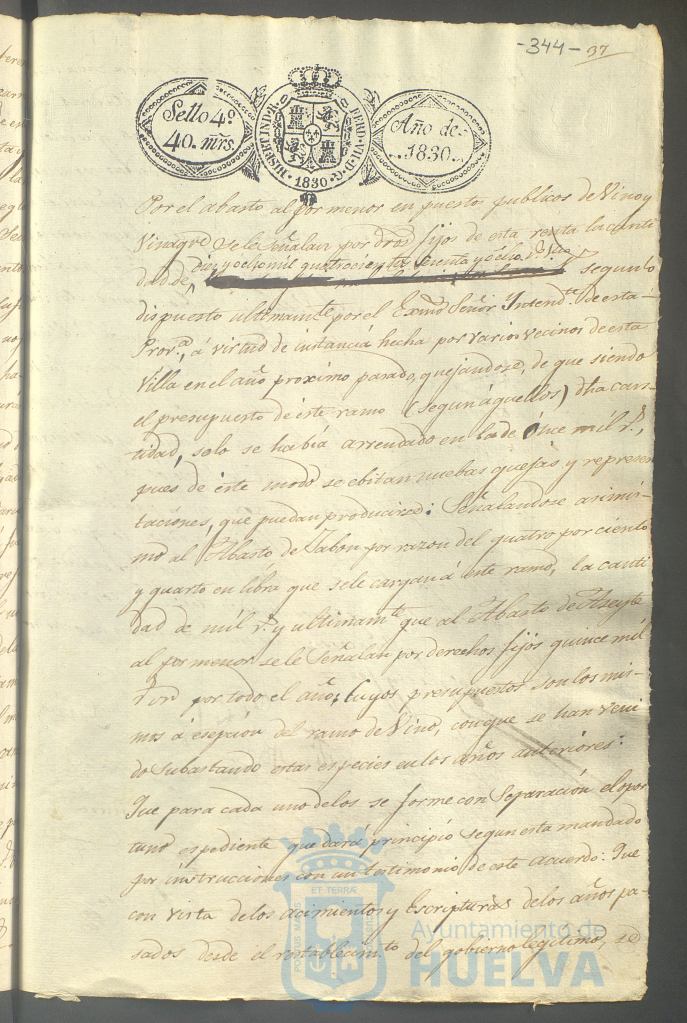 -344- 37
Sello 4º
40. mrs.
HISP. ET IND. R. FERD. VII. D. G. 1830
Año de
1830.
Por el abasto al por menor en puestos publicos de Vino y
Vinagre se le Señalan por dros fijos de esta renta la canti
dad de diez y ocho mil quatrocientos y ocho r.s segun lo
dispuesto ultimam.te por el Exmo Señor Intend.te de esta
Prov.a, á virtud de instancia hecha por varios vecinos de esta
Villa en el año proximo pasado, quejandose, de que siendo
el presupuesto de este ramo (segun aquellos) dha can-
tidad, solo se habia arrendado en la de once mil r.s,
pues de este modo se ebitan nuebas quejas y represen
taciones, que puedan producirse: Señalandose asimis-
mo al Abasto de Jabon por razon del quatro por ciento
y quarto en libra que se le cargan á este ramo, la canti
dad de mil r.s y ultimam.te que al Abasto de Aseyte
al por menor se le Señalan por derechos fijos quince mil
r.s por todo el año; Cuyos presupuestos son los mis-
mos á esepcion del ramo de Vino, con que se han veni
do subastando estas especies en los años anteriores:
Que para cada uno de los se forme con Separación el opor
tuno espediente que dará principio segun esta mandado
por instrucciones con un testimonio de este acuerdo: Que
con vista de los acimientos y Escripturas de los años pa-
sados desde el restablecim.to del gobierno legitimo, se
PORTUS MARIS ET TERRÆ CUSTODIA
Ayuntamiento de
HUELVA